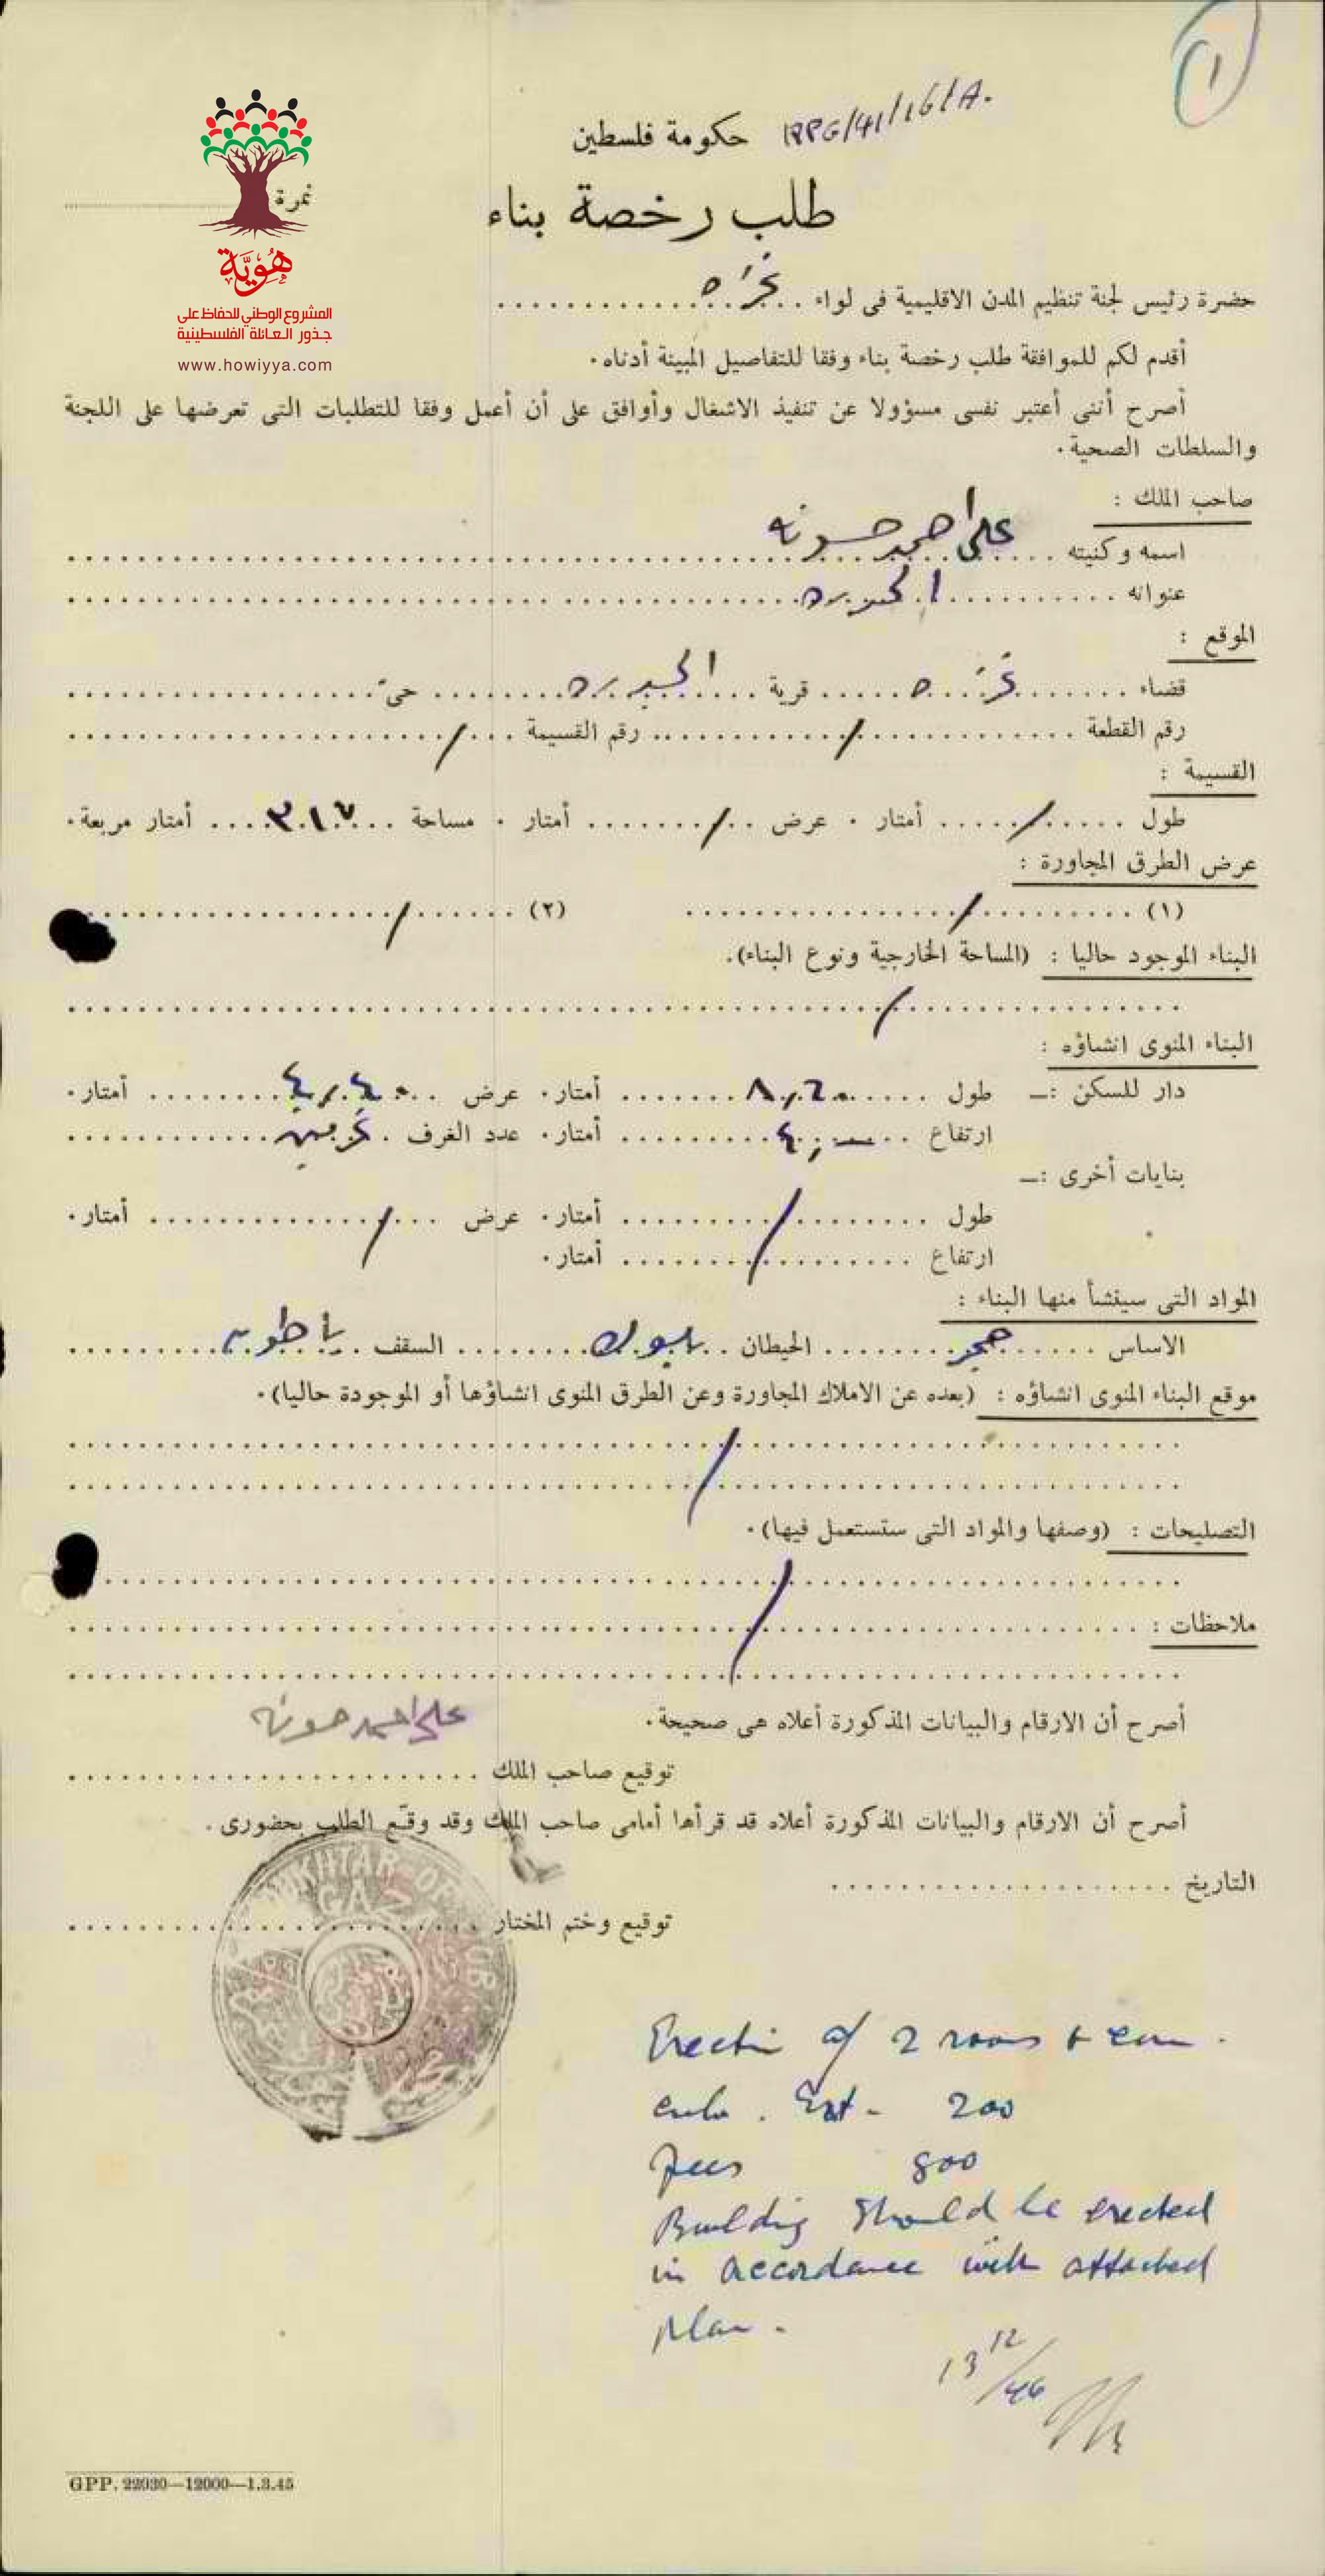 1
RPG/41/161/A.
حكومة فلسطين
نمرة
طلب رخصة بناء
هُوِيَّة
المشروع الوطني للحفاظ على
جذور العائلة الفلسطينية
www.howiyya.com
حضرة رئيس لجنة تنظيم المدن الاقليمية فى لواء غزه
أقدم لكم للموافقة طلب رخصة بناء وفقا للتفاصيل المبينة أدناه.
أصرح أننى أعتبر نفسى مسؤولا عن تنفيذ الاشغال وأوافق على أن أعمل وفقا للمتطلبات التى تعرضها على اللجنة
والسلطات الصحية.
صاحب الملك :
اسمه وكنيته على احمد حسونه
عنوانه
الموقع :
قضاء غزه قرية حىّ
رقم القطعة / رقم القسيمة /
القسيمة :
طول / أمتار . عرض / أمتار . مساحة أمتار مربعة.
عرض الطرق المجاورة :
(١) / (٢) /
البناء الموجود حاليا : (المساحة الخارجية ونوع البناء).
/
البناء المنوى انشاؤه :
دار للسكن :— طول أمتار. عرض ٤,٤٠ أمتار.
ارتفاع ٤,— أمتار. عدد الغرف غرفتين
بنايات أخرى :—
طول / أمتار. عرض / أمتار.
ارتفاع / أمتار.
المواد التى سينشأ منها البناء :
الاساس حجر الحيطان بلوك السقف باطون
موقع البناء المنوى انشاؤه : (بعده عن الاملاك المجاورة وعن الطرق المنوى انشاؤها أو الموجودة حاليا).
/
التصليحات : (وصفها والمواد التى ستستعمل فيها).
/
ملاحظات :
أصرح أن الارقام والبيانات المذكورة أعلاه هى صحيحة.
على احمد حسونه
توقيع صاحب الملك
أصرح أن الارقام والبيانات المذكورة أعلاه قد قرأها أمامى صاحب الملك وقد وقّع الطلب بحضورى.
التاريخ
توقيع وختم المختار
MUKHTAR OF
GAZ
Erection of 2 rooms +
Est - 200
Fees 800
Building should be erected
in accordance with attached
plan.
13/12/46
GPP. 22030—12000—1.3.45